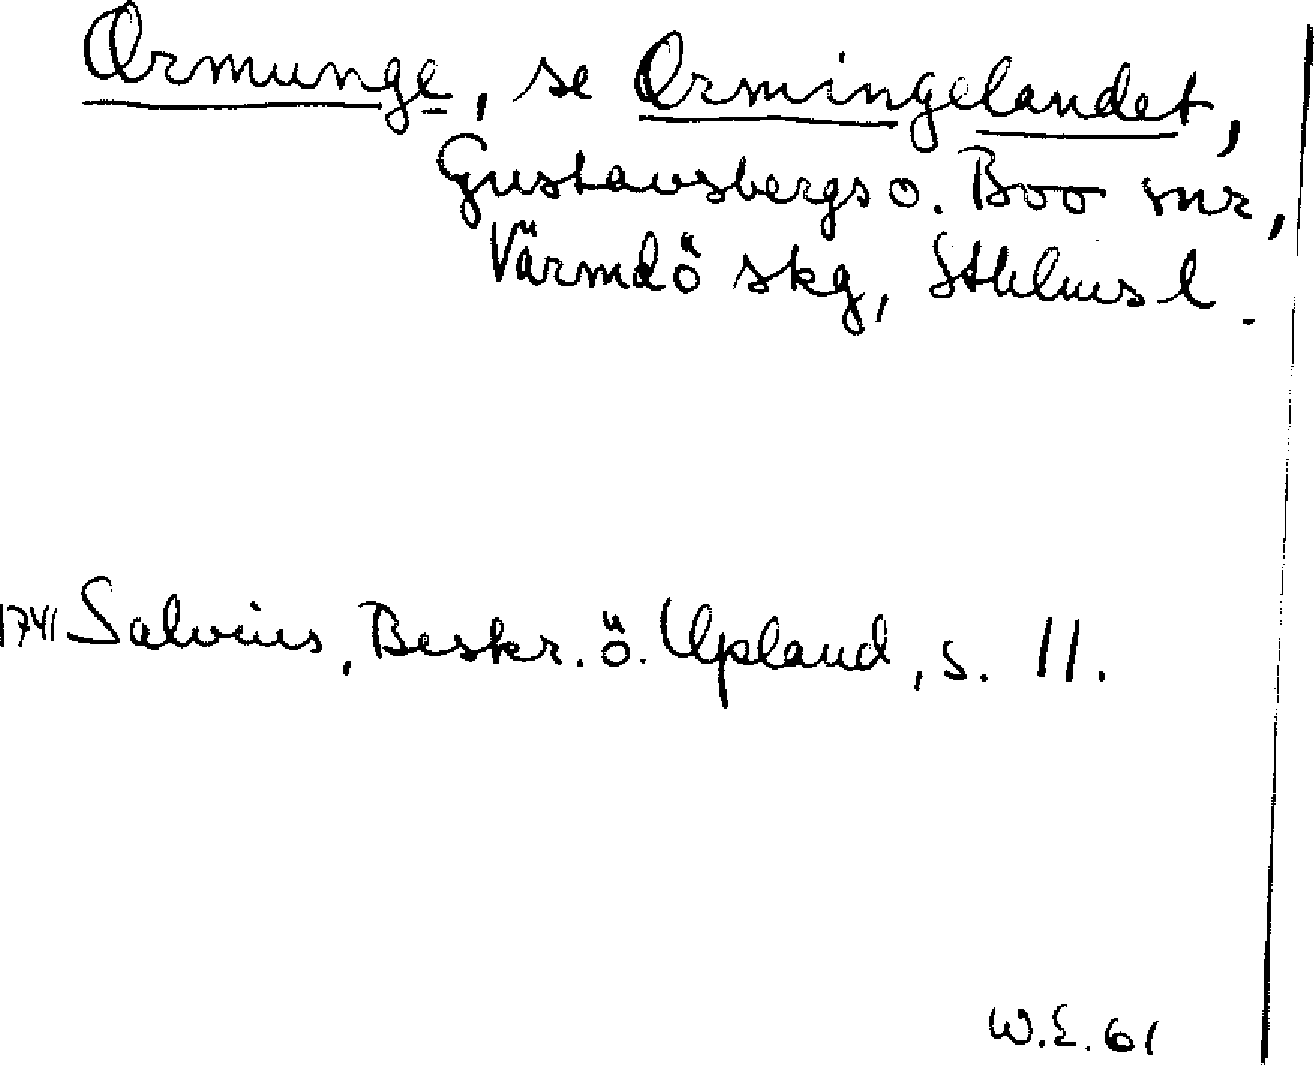 Ormunge, se Ormingelandet,
Gustavsbergs o. Boo snr,
Värmdö skg, Sthlms l.
1741 Salvius, Beskr. ö. Upland, s. 11.
W.E. 61